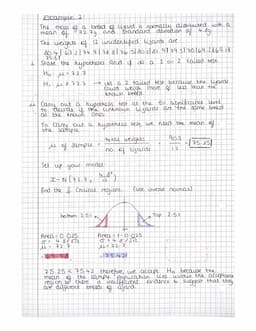 Example 2:
The mass of a breed of lizard is normally distributed with a
mean of 72.7g and standard deviation of 4.8g.
The weights of 12 unidentified lizards are
State the hypothesis and if it is a 1 or 2 tailed test
H₀ : μ = 72.7
H₁ : μ ≠ 72.7 → it's a 2 tailed test because the lizards
could weigh more or less than the
known breed.
ii. Carry out a hypothesis test at the 5% significance level
to decide if the unknown lizards are the same breed
as the known ones.
To carry out a hypothesis test, we need the mean of
the sample.
μ of sample = total weight / no. of lizards = 903 / 12 = 75.25
Set up your model:
Find the 2 critical regions. (use inverse normal)
bottom 2.5% top 2.5%
Area = 0.025 Area = 1 - 0.025
σ = 4.8/√12 σ = 4.8/√12
μ = 72.7 μ = 72.7
75.42
75.25 < 75.42 therefore, we accept H₀ because the
mean of the sample population lies within the acceptance
region so there is insufficient evidence to suggest that they
are different breeds of lizard.